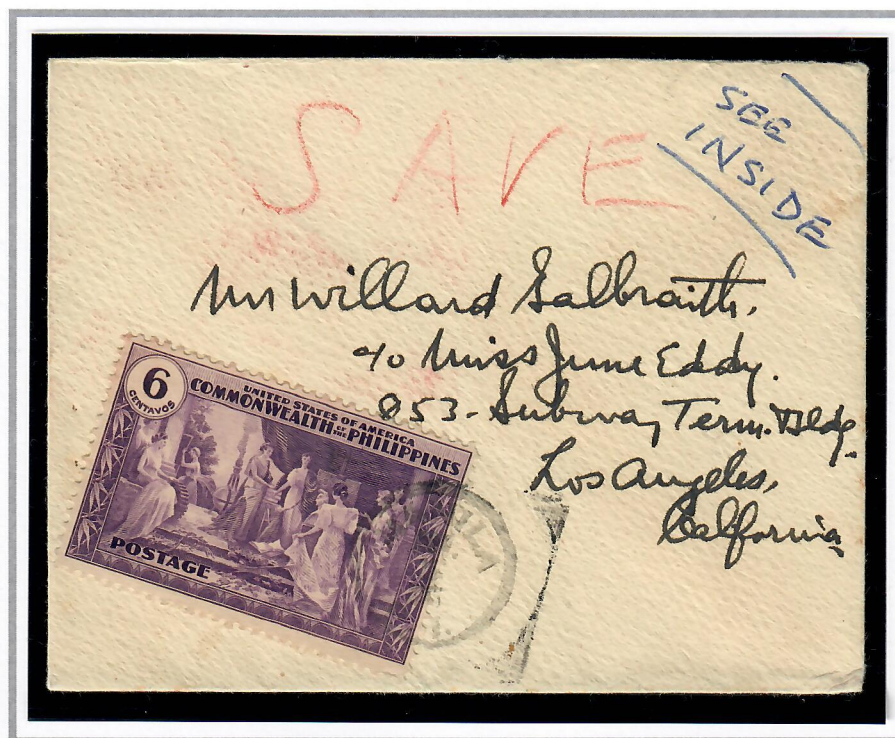 SAVE
SEE
INSIDE
Mr Willard Galbraith,
c/o Miss June Eddy.
853 - Subway Term. Bldg.
Los Angeles,
California
6
CENTAVOS
UNITED STATES OF AMERICA
COMMONWEALTH OF THE PHILIPPINES
POSTAGE